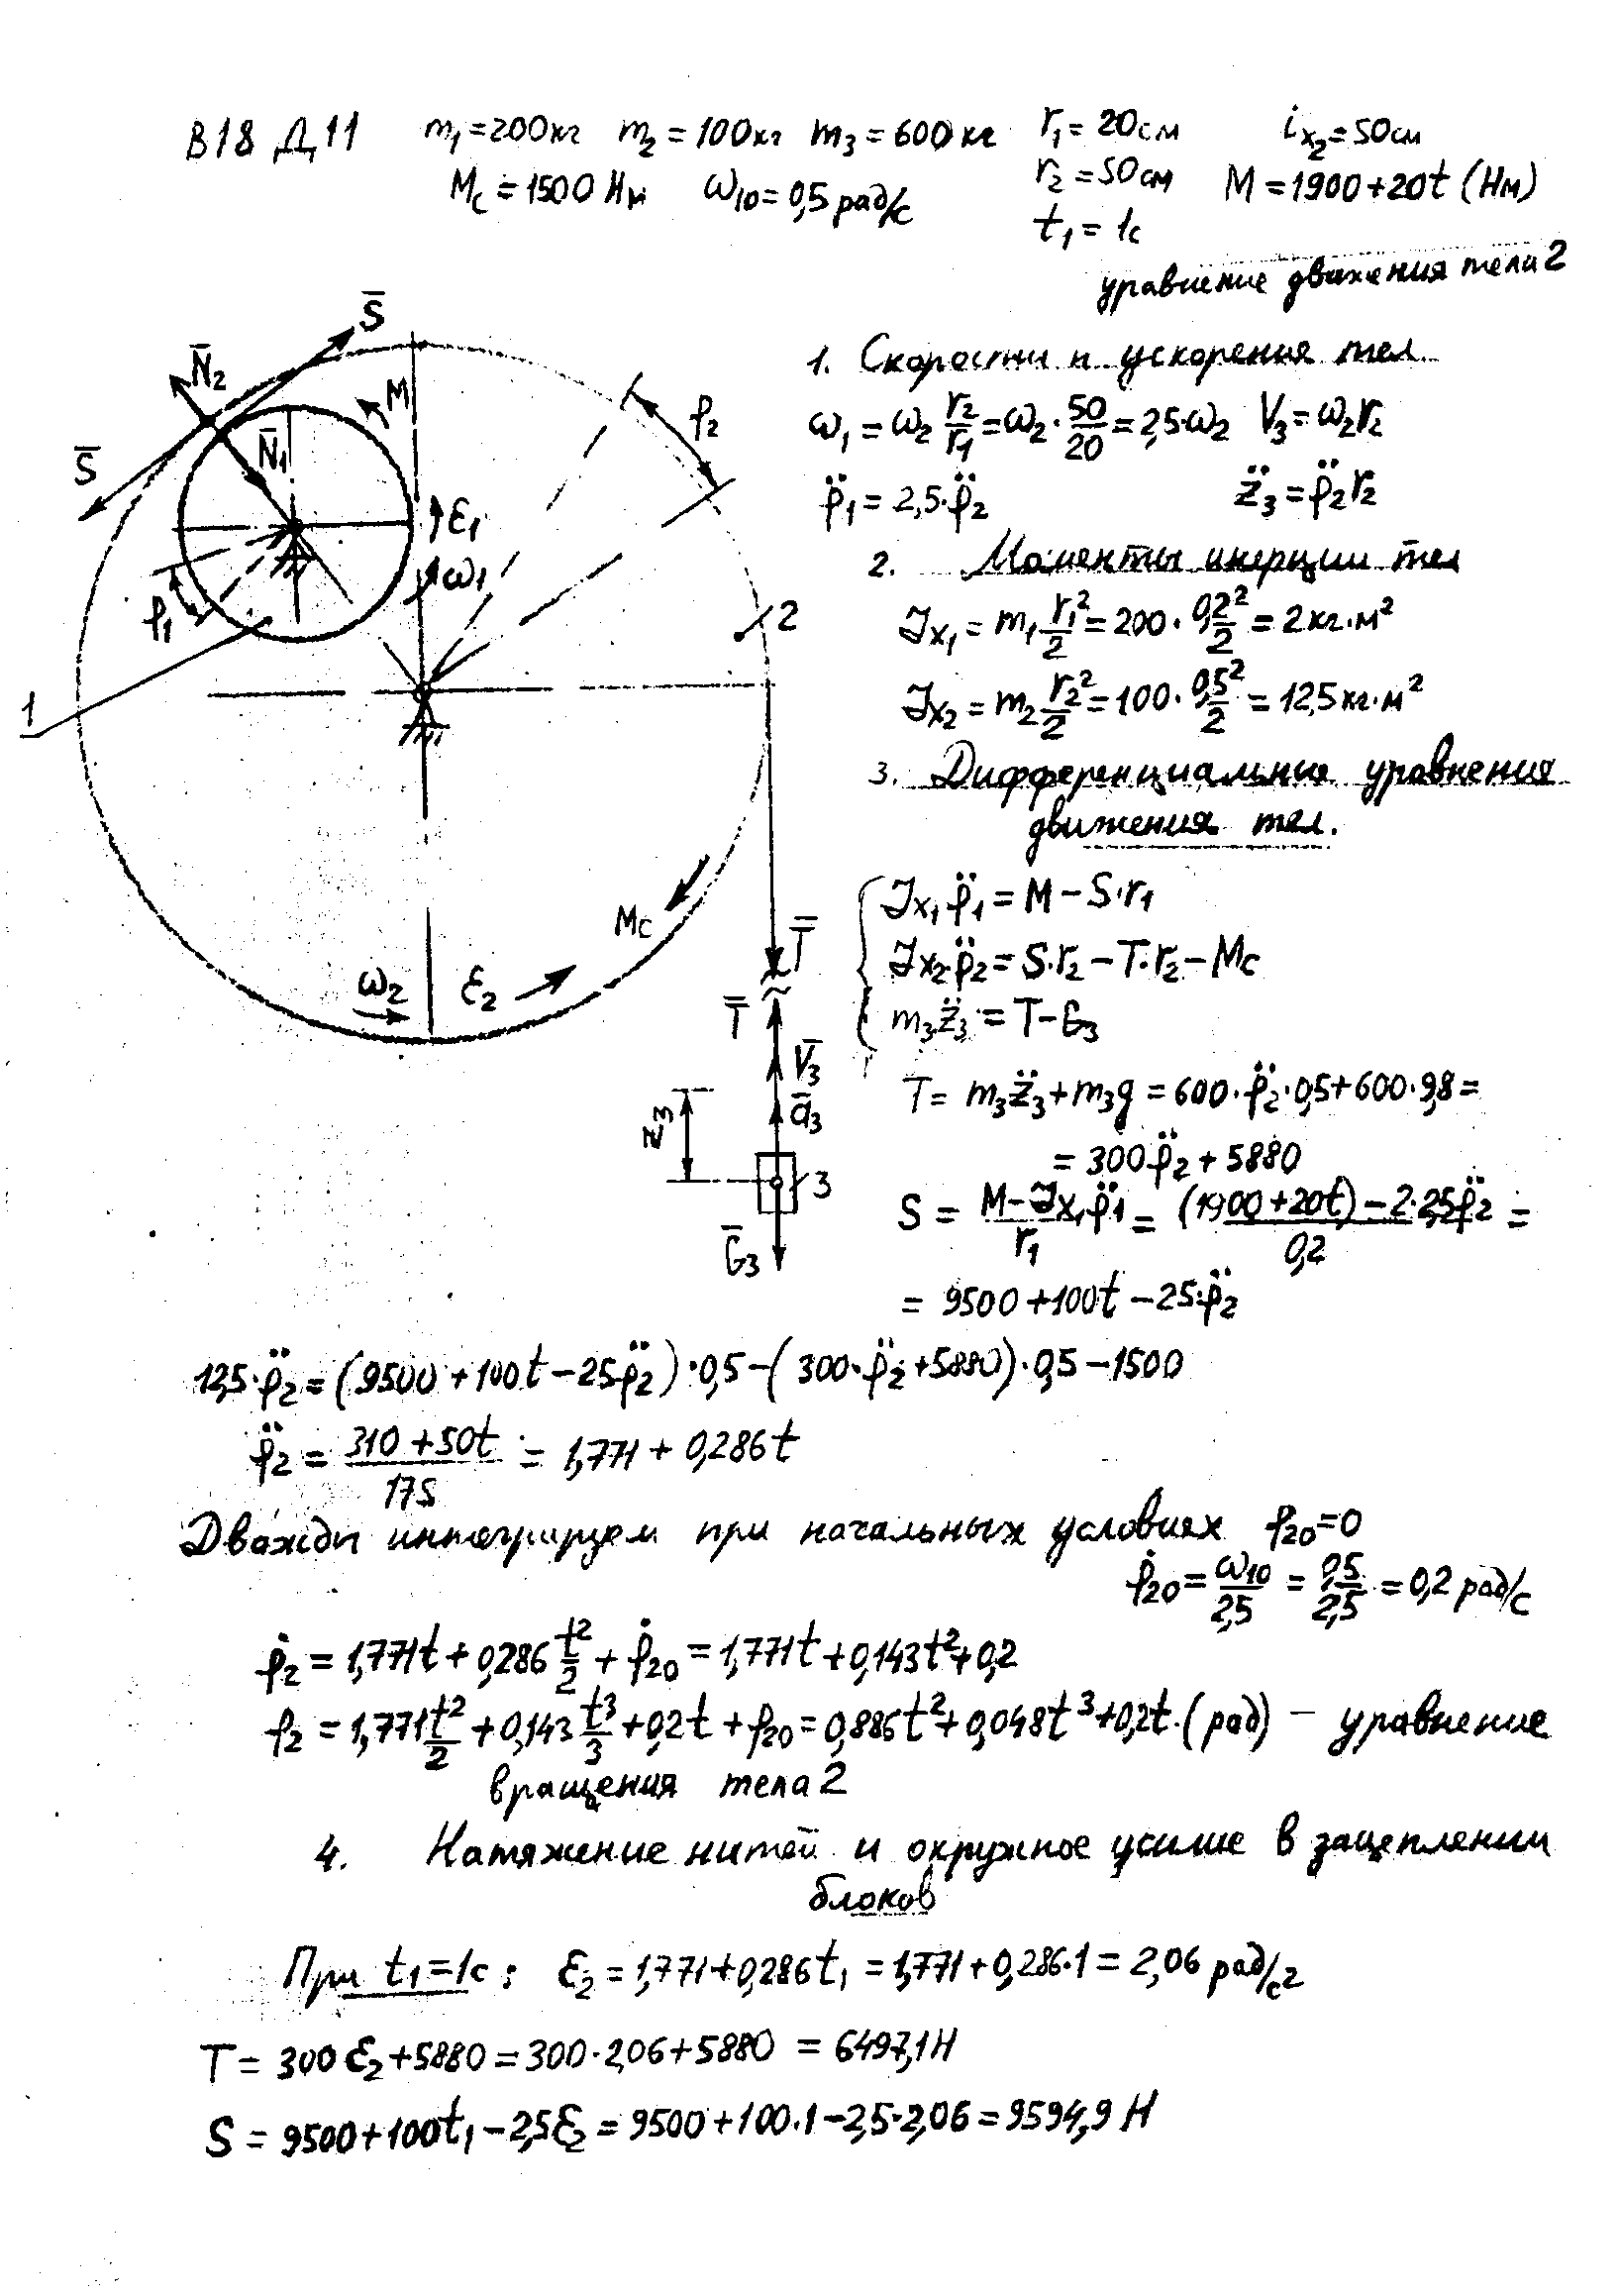 В18 Д11 m₁=200кг m₂=100кг m₃=600кг r₁=20см iₓ₂=50см
M_c=1500 Нм ω₁₀=0,5 рад/с r₂=50см M=1900+20t (Нм)
t₁=1с
уравнение движения тела 2
1. Скорости и ускорения тел.
ω₁=ω₂ r₂/r₁=ω₂·50/20=2,5·ω₂ V₃=ω₂r₂
φ̈₁=2,5·φ̈₂ z̈₃=φ̈₂r₂
2. Моменты инерции тел
Jx₁=m₁ r₁²/2=200·0,2²/2=2кг·м²
Jx₂=m₂ r₂²/2=100·0,5²/2=12,5кг·м²
3. Дифференциальные уравнения
движения тел.
Jx₁φ̈₁=M−S·r₁
Jx₂·φ̈₂=S·r₂−T·r₂−Mc
m₃z̈₃=T−G₃
T=m₃z̈₃+m₃g=600·φ̈₂·0,5+600·9,8=
=300φ̈₂+5880
S=(M−Jx₁φ̈₁)/r₁=((1900+20t)−2·2,5φ̈₂)/0,2=
=9500+100t−25·φ̈₂
S̅
N̅₂
M
φ₂
S̅
N̅₁
ε₁
ω₁
φ₁
2
1
Mc
T̅
ω₂ ε₂
T̅
V̅₃
z₃
a̅₃
3
G̅₃
12,5·φ̈₂=(9500+100t−25φ̈₂)·0,5−(300·φ̈₂+5880)·0,5−1500
φ̈₂=(310+50t)/175=1,771+0,286t
Дважды интегрируем при начальных условиях φ₂₀=0
φ̇₂₀=ω₁₀/2,5=0,5/2,5=0,2 рад/с
φ̇₂=1,771t+0,286 t²/2+φ̇₂₀=1,771t+0,143t²+0,2
φ₂=1,771 t²/2+0,143 t³/3+0,2t+φ₂₀=0,886t²+0,048t³+0,2t.(рад) – уравнение
вращения тела 2
4. Натяжение нитей и окружное усилие в зацеплении
блоков
При t₁=1с: ε₂=1,771+0,286t₁=1,771+0,286·1=2,06 рад/с²
T=300ε₂+5880=300·2,06+5880=6497,1Н
S=9500+100t₁−2,5ε₂=9500+100·1−2,5·2,06=9594,9 Н